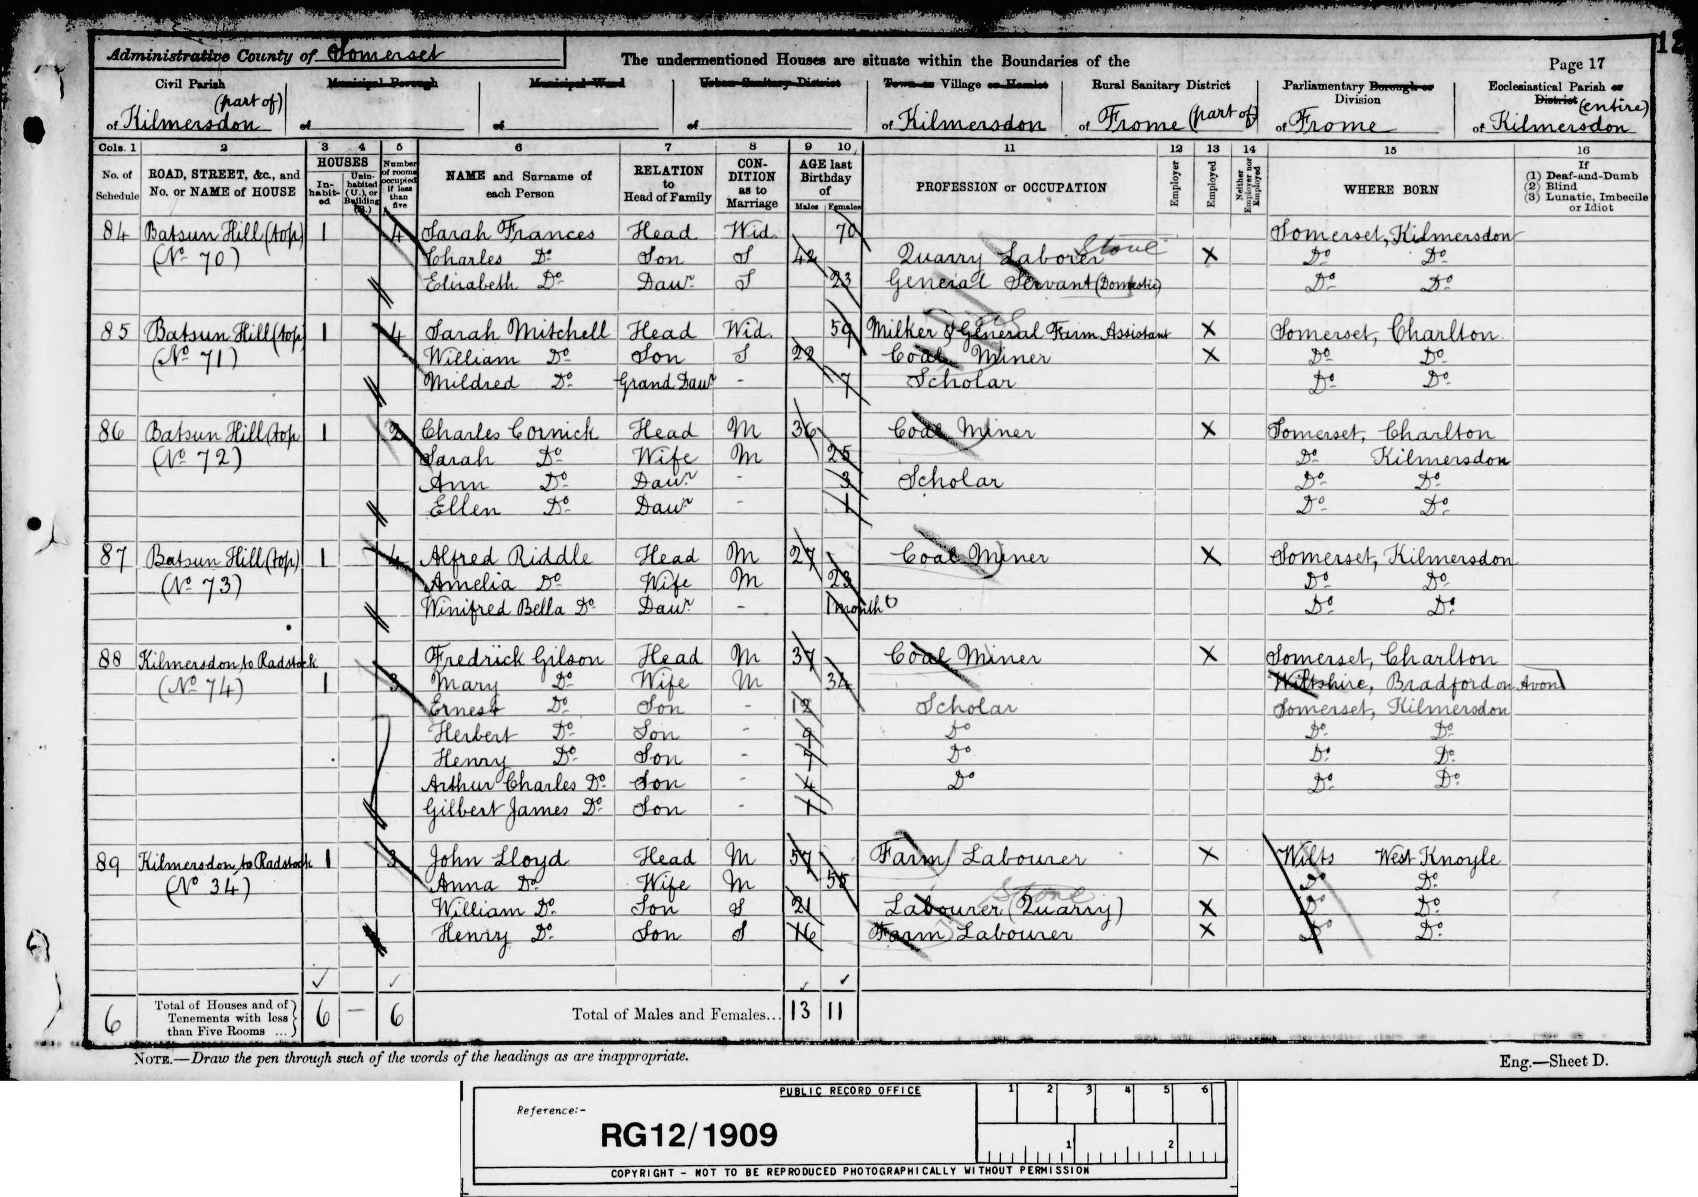 Administrative County of Somerset
The undermentioned Houses are situate within the Boundaries of the
Page 17
Civil Parish of Kilmersdon (part of)
Municipal Borough of
Municipal Ward of
Urban Sanitary District of
Town or Village or Hamlet of Kilmersdon
Rural Sanitary District of Frome (part of)
Parliamentary Borough or Division of Frome
Ecclesiastical Parish or District of Kilmersdon (entire)
Cols. 1 2 3 4 5 6 7 8 9 10 11 12 13 14 15 16
No. of Schedule
ROAD, STREET, &c., and No. or NAME of HOUSE
HOUSES
In-habit-ed
Unin-habited (U.), or Building (B.)
Number of rooms occupied if less than five
NAME and Surname of each Person
RELATION to Head of Family
CON-DITION as to Marriage
AGE last Birthday of
Males Females
PROFESSION or OCCUPATION
Employer
Employed
Neither Employer nor Employed
WHERE BORN
If
(1) Deaf-and-Dumb
(2) Blind
(3) Lunatic, Imbecile or Idiot
84 Batsun Hill (top) 1 4 Sarah Frances Head Wid. 70 Somerset, Kilmersdon
(No 70) Charles Do Son S 42 Quarry Laborer Stone X Do Do
Elizabeth Do Daur S 23 General Servant (Domestic) Do Do
85 Batsun Hill (top) 1 4 Sarah Mitchell Head Wid. 59 Milker & General Farm Assistant X Somerset, Charlton
(No 71) William Do Son S 22 Coal Miner X Do Do
Mildred Do Grand Daur - 7 Scholar Do Do
86 Batsun Hill (top 1 2 Charles Cornick Head M 36 Coal Miner X Somerset, Charlton
(No 72) Sarah Do Wife M 25 Do Kilmersdon
Ann Do Daur - 3 Scholar Do Do
Ellen Do Daur - 1 Do Do
87 Batsun Hill (top) 1 4 Alfred Riddle Head M 27 Coal Miner X Somerset, Kilmersdon
(No 73) Amelia Do Wife M 23 Do Do
Winifred Bella Do Daur - 1 month Do Do
88 Kilmersdon to Radstock Fredrick Gilson Head M 37 Coal Miner X Somerset, Charlton
(No 74) 1 3 Mary Do Wife M 34 Wiltshire, Bradford on Avon
Ernest Do Son - 12 Scholar Somerset, Kilmersdon
Herbert Do Son - 9 Do Do Do
Henry Do Son - 7 Do Do Do
Arthur Charles Do Son - 4 Do Do Do
Gilbert James Do Son - 1
89 Kilmersdon to Radstock 1 3 John Lloyd Head M 57 Farm Labourer X Wilts West Knoyle
(No 34) Anna Do Wife M 55 Do Do
William Do Son S 21 Labourer (Quarry) Stone X Do Do
Henry Do Son S 16 Farm Labourer X Do Do
6 Total of Houses and of Tenements with less than Five Rooms ... 6 — 6 Total of Males and Females... 13 11
NOTE.—Draw the pen through such of the words of the headings as are inappropriate.
Eng.—Sheet D.
PUBLIC RECORD OFFICE
1 2 3 4 5 6
Reference:-
RG12/1909
1 2
COPYRIGHT - NOT TO BE REPRODUCED PHOTOGRAPHICALLY WITHOUT PERMISSION